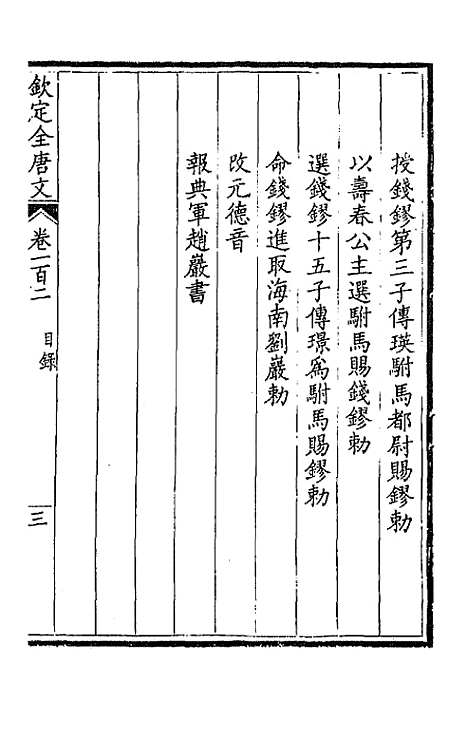 授錢鏐第三子傳瑛駙馬都尉賜鏐勅
以壽春公主選駙馬賜錢鏐勅
選錢鏐十五子傳璟爲駙馬賜鏐勅
命錢鏐進取海南劉巖勅
改元德音
報典軍趙巖書
欽定全唐文 卷一百二 目錄 三